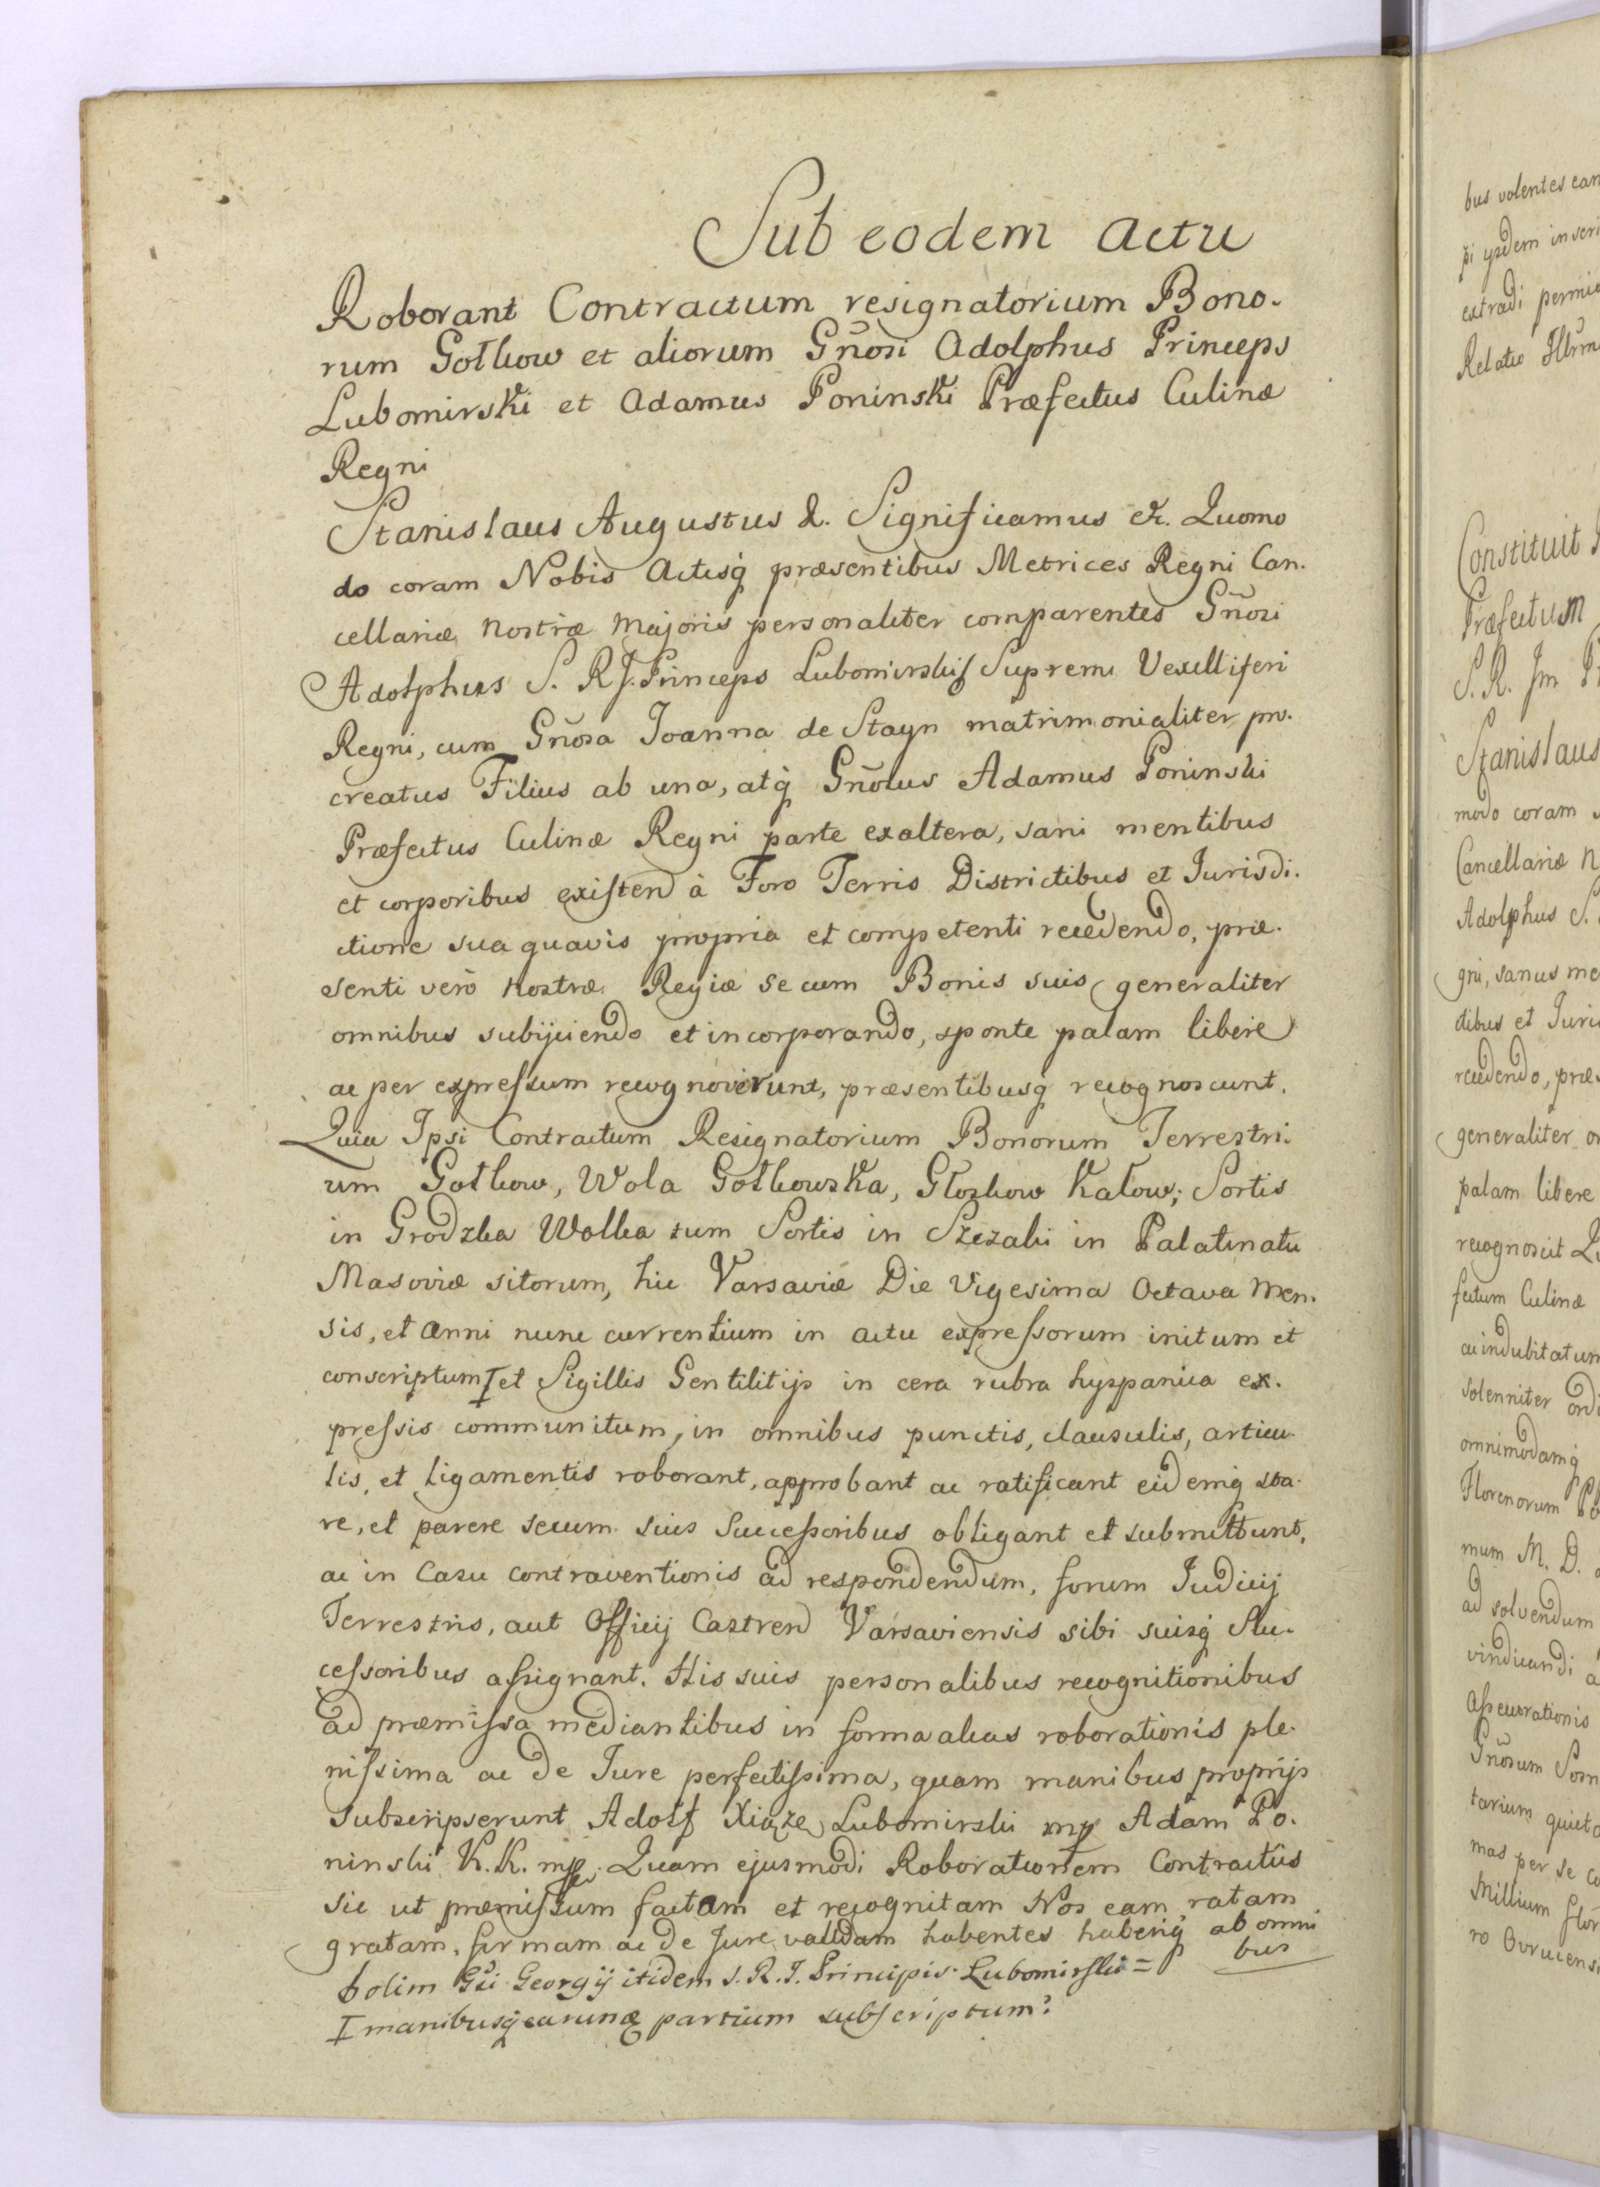 Sub eodem actu
Roborant Contractum resignatorium Bono-
rum Gołkow et aliorum Gñosi Adolphus Princeps
Lubomirski et Adamus Poninski Præfectus Culinæ
Regni
Stanislaus Augustus &. Significamus &. Quomo
do coram Nobis Actisq præsentibus Metrices Regni Can-
cellariæ nostræ Majoris personaliter comparentes Gñosi
Adolphus S. R. J. Princeps Lubomirski Supremi Vexilliferi
Regni, cum Gñosa Joanna de Stayn matrimonialiter pro-
creatus Filius ab una, atq Gñosus Adamus Poninski
Præfectus Culinæ Regni parte ex altera, sani mentibus
et corporibus existend à Foro Terris Districtibus et Jurisdi-
ctione sua quavis propria et competenti recedendo, præ-
senti verò nostræ Regiæ se cum Bonis suis generaliter
omnibus subijciendo et incorporando, sponte palam libere
ac per expressum recognoverunt, præsentibusq recognoscunt.
Quia Ipsi Contractum Resignatorium Bonorum Terrestri-
um Gołkow, Wola Gołkowska, Głoskow Kałow, Sortis
in Grodzka Wolka tum Sortis in Szczaki in Palatinatu
Masoviæ sitorum, hic Varsaviæ Die Vigesima Octava Men-
sis, et Anni nunc currentium in actu expressorum initum et
conscriptum et Sigillis Gentilitijs in cera rubra hyspanica ex-
pressis communitum, in omnibus punctis, clausulis, articu-
lis, et ligamentis roborant, approbant ac ratificant eidemq sta-
re, et parere secum suis Successoribus obligant et submittunt,
ac in Casu contraventionis ad respondendum, forum Judicij
Terrestris, aut Officij Castrend Varsaviensis sibi suisq Suc-
cessoribus assignant. His suis personalibus recognitionibus
ad præmissa mediantibus in forma alias roborationis ple-
nissima ac de Jure perfectissima, quam manibus proprijs
subscripserunt Adolf Xiąże Lubomirski mp Adam Po-
ninski K. K. mp. Quam ejusmodi Roborationem Contractûs
sic ut præmissum factam et recognitam Nos eam ratam
gratam, firmam ac de Jure validam habentes haberiq ab omni
bus
olim Gsi Georgij itidem S. R. J. Principis Lubomirski =
manibusq earumq partium subscriptum
bus volentes
extradi
Relatio
Constituit
Præfectum
S. R. Jm
Stanislaus
modo coram
Cancellariæ
Adolphus S.
gni, sanus
recedendo,
generaliter
palam libere
recognoscit
fectum Culinæ
ac indubitatum
solenniter
omnimodamq
Florenorum
mum M. D.
ad solvendum
vindicandi
Assecurationis
Gñosum
tarium
mas per se
Millium